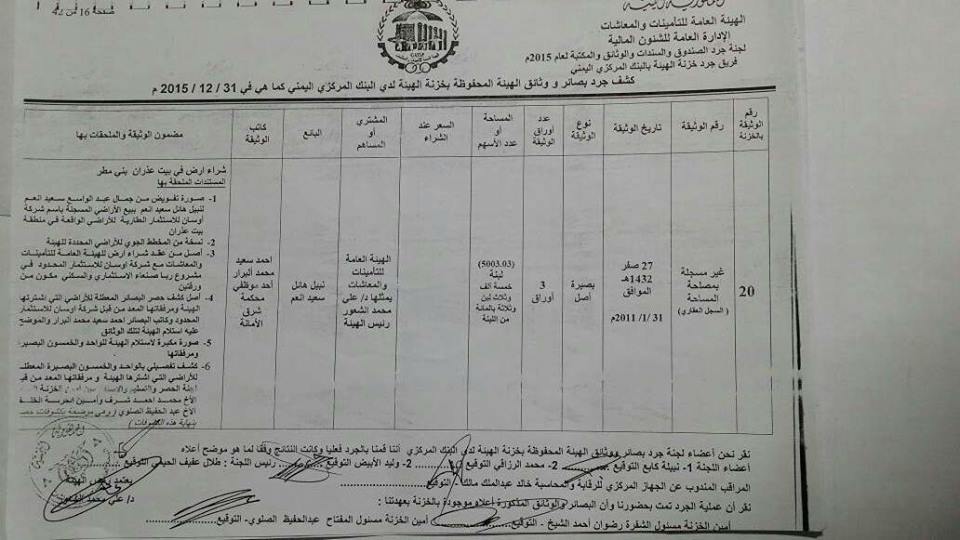 صفحة 16 من 42
الهيئة العامة للتأمينات والمعاشات
الإدارة العامة للشئون المالية
لجنة جرد الصندوق والسندات والوثائق والمكتبة لعام 2015م
فريق جرد خزنة الهيئة بالبنك المركزي اليمني
كشف جرد بصائر و وثائق الهيئة المحفوظة بخزنة الهيئة لدي البنك المركزي اليمني كما هي في 31 / 12 / 2015 م
رقم الوثيقة بالخزنة
رقم الوثيقة
تاريخ الوثيقة
نوع الوثيقة
عدد أوراق الوثيقة
المساحة أو عدد الأسهم
السعر عند الشراء
المشتري أو المساهم
البائع
كاتب الوثيقة
مضمون الوثيقة والملحقات بها
20
غير مسجلة
بمصلحة
المساحة
( السجل العقاري)
27 صفر
1432هـ
الموافق
31 /1/ 2011م
بصيرة
أصل
3
أوراق
(5003.03)
لبنة
خمسة ألف
وثلاث لبن
وثلاثة بالمائة
من اللبنة
الهيئة العامة
للتأمينات
والمعاشات
يمثلها د/ علي
محمد الشعور
رئيس الهيئة
نبيل هائل
سعيد انعم
احمد سعيد
محمد البرار
أحد موظفي
محكمة
شرق
الأمانة
شراء ارض في بيت عذران بني مطر
المستندات الملحقة بها
1- صورة تفويض من جمال عبد الواسع سعيد انعم
لنبيل هائل سعيد انعم ببيع الأراضي المسجلة باسم شركة
أوسان للاستثمار العقارية للأراضي الواقعة في منطقة
بيت عذران
2- نسخة من المخطط الجوي للأراضي المحددة للهيئة
3- أصل من عقد شراء ارض للهيئة العامة للتأمينات
والمعاشات مع شركة اوسان للاستثمار المحدود في
مشروع ربا صنعاء الاستثماري والسكني مكون من
ورقتين
4- أصل كشف حصر البصائر المعطلة للأراضي التي اشترتها
الهيئة ومرفقاتها المعد من قبل شركة اوسان للاستثمار
المحدود وكاتب البصائر احمد سعيد محمد البرار والموضح
عليه استلام الهيئة لتلك الوثائق
5- صورة مكبرة لاستلام الهيئة للواحد والخمسون البصيرة
ومرفقاتها
6- كشف تفصيلي بالواحد والخمسون البصيرة المعطلة
للأراضي التي اشترها الهيئة و مرفقاتها المعد من قبل
لجنة الحصر والتسليم
الأخ محمد احمد شرف وأمين الخزنة
الأخ عبد الحفيظ الصلوي ( موضحة بكشوفات
بنهاية هذه الكشوفات )
نقر نحن أعضاء لجنة جرد بصائر ووثائق الهيئة المحفوظة بخزنة الهيئة لدي البنك المركزي أننا قمنا بالجرد فعليا وكانت النتائج وفقا لما هو موضح أعلاه
أعضاء اللجنة 1- نبيلة كايع التوقيع 2- محمد الرزاقي التوقيع 2- وليد الأبيض التوقيع رئيس اللجنة : طلال عفيف الحيمي التوقيع
المراقب المندوب عن الجهاز المركزي للرقابة والمحاسبة خالد عبدالملك مالك - التوقيع
يعتمد رئيس الهيئة
نقر أن عملية الجرد تمت بحضورنا وأن البصائر والوثائق المذكورة أعلاه موجودة بالخزنة بعهدتنا:
د/ علي محمد الشعور
أمين الخزنة مسئول الشفرة رضوان أحمد الشيخ - التوقيع أمين الخزنة مسئول المفتاح عبدالحفيظ الصلوي - التوقيع